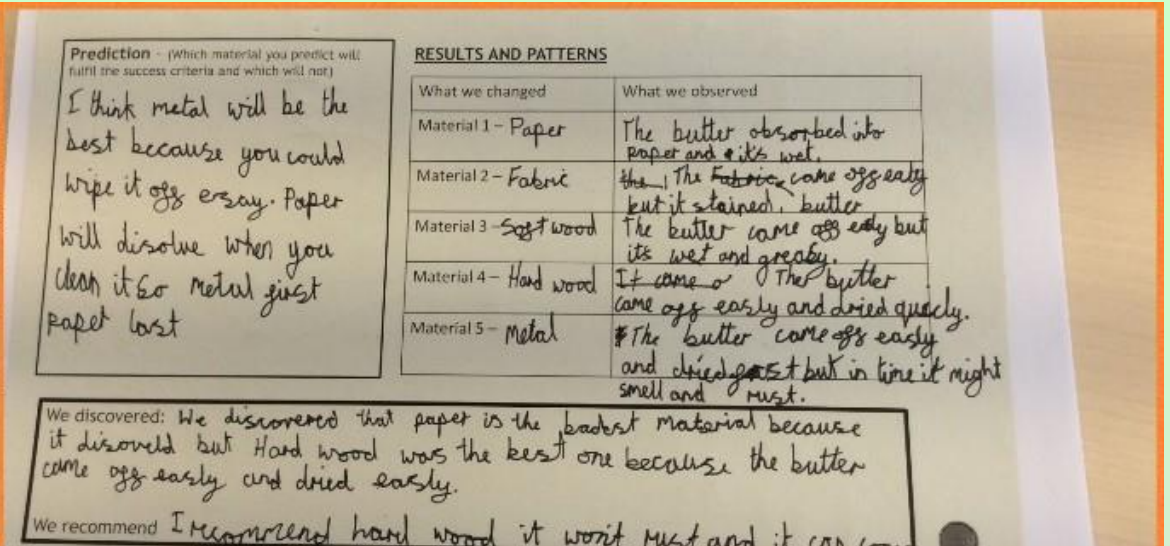 Prediction - (Which material you predict will
fulfil the success criteria and which will not)
I think metal will be the
best because you could
wipe it off ersay. Paper
will disolve when you
clean it So metal first
paper last
RESULTS AND PATTERNS
What we changed
What we observed
Material 1 - Paper
The butter obsorbed into
paper and it's wet.
Material 2 - Fabric
the The Fabric came off eaty
but it stained, butter
Material 3 - Soft wood
The butter came off edy but
its wet and greasy.
Material 4 - Hard wood
It came o The butter
came off easly and dried quicly.
Material 5 - Metal
The butter came off easly
and dried fast but in time it might
smell and rust.
We discovered: We discovered that paper is the badest material because
it disoveld but Hard wood was the best one because the butter
came off easly and dried easly.
We recommend I recommend hard wood it won't rust and it can